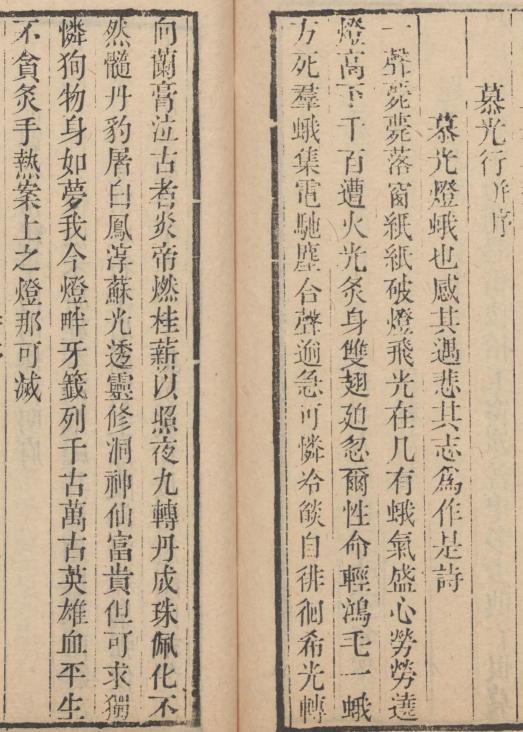 慕光行并序
慕光燈蛾也感其遇悲其志為作是詩
一聲薨薨落窗紙紙破燈飛光在几有蛾氣盛心勞勞遶
燈高下千百遭火光炙身雙翅迫忽爾性命輕鴻毛一蛾
方死羣蛾集電馳塵合聲逾急可憐冷燄自徘徊希光轉
向蘭膏泣古者炎帝燃桂薪以照夜九轉丹成珠佩化不
然髓丹豹屠白鳳淳蘇光透靈修洞神仙富貴但可求獨
憐狗物身如夢我今燈畔牙籤列千古萬古英雄血平生
不貪炙手熱案上之燈那可滅